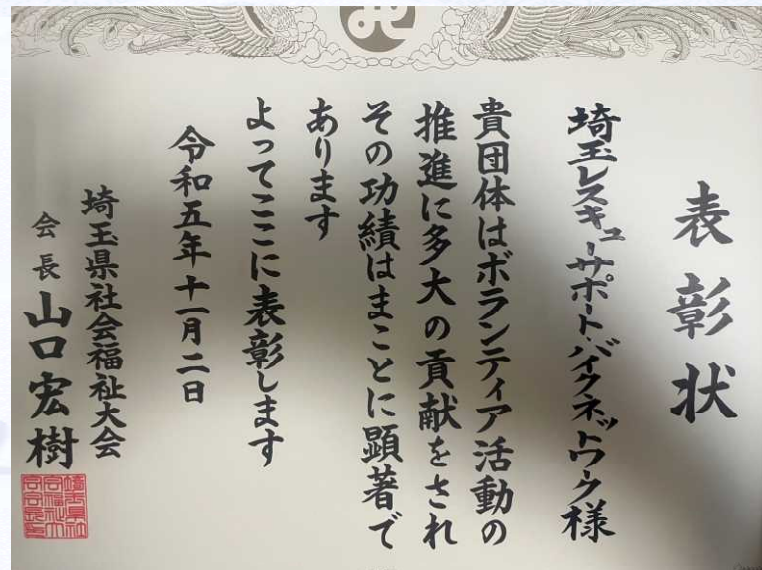 表彰状
埼玉レスキューサポート・バイクネットワーク様
貴団体はボランティア活動の
推進に多大の貢献をされ
その功績はまことに顕著で
あります
よってここに表彰します
令和五年十一月二日
埼玉県社会福祉大会
会長 山口宏樹